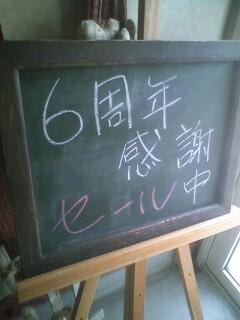 6周年
感謝
セール中